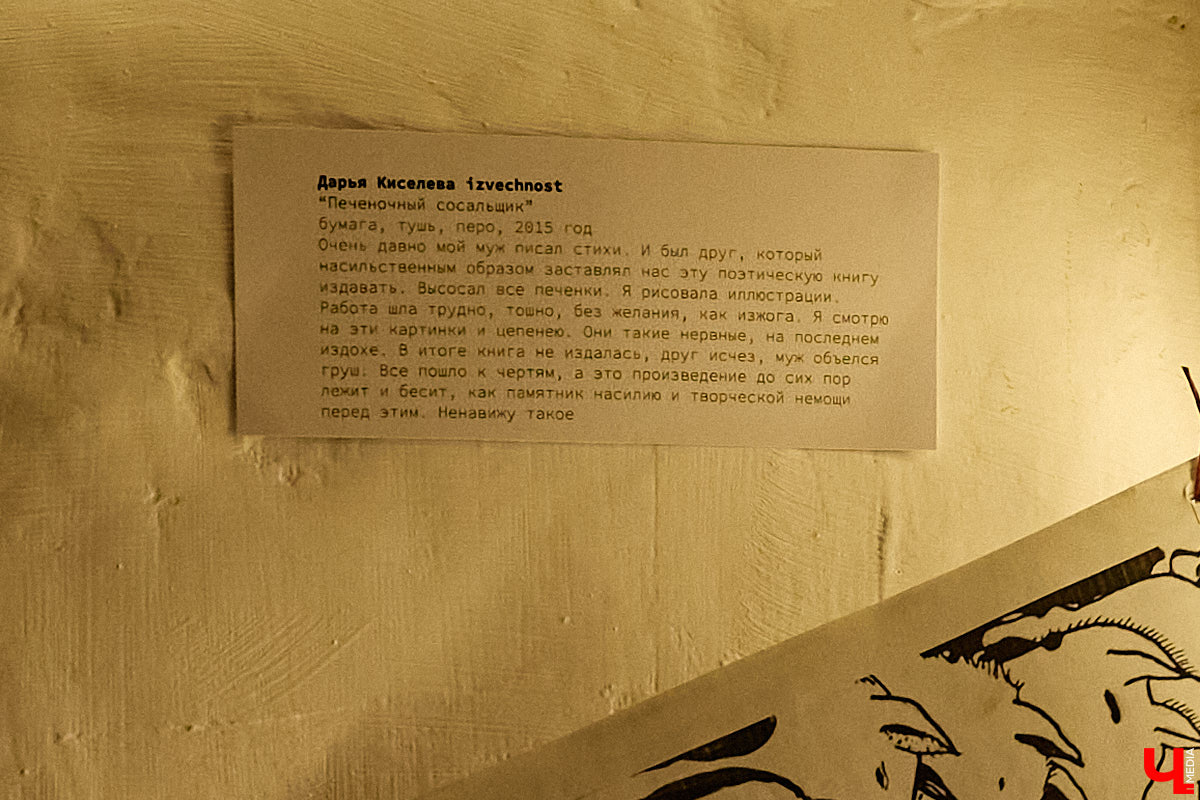 Дарья Киселева izvechnost
“Печеночный сосальщик”
бумага, тушь, перо, 2015 год
Очень давно мой муж писал стихи. И был друг, который
насильственным образом заставлял нас эту поэтическую книгу
издавать. Высосал все печенки. Я рисовала иллюстрации.
Работа шла трудно, тошно, без желания, как изжога. Я смотрю
на эти картинки и цепенею. Они такие нервные, на последнем
издохе. В итоге книга не издалась, друг исчез, муж объелся
груш. Все пошло к чертям, а это произведение до сих пор
лежит и бесит, как памятник насилию и творческой немощи
перед этим. Ненавижу такое
Ч MEDIA